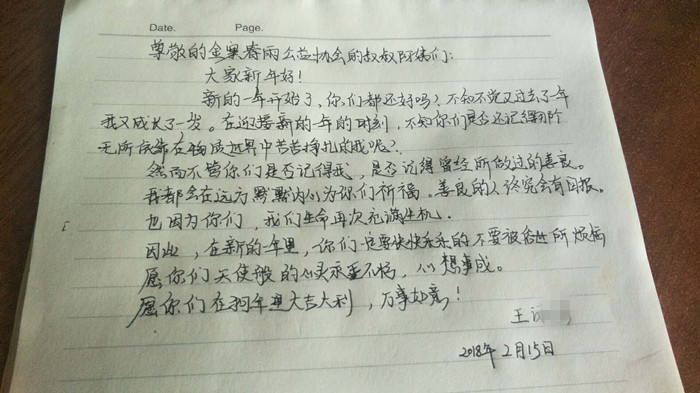 Date. Page.
尊敬的金寨春雨公益协会的叔叔阿姨们:
大家新年好!
新的一年开始了,你们都还好吗?不知不觉又过去了一年
我又成长了一岁。在迎接新的一年的时刻,不知你们是否还记得那个
无所依靠在物质世界中苦苦挣扎的我呢?
然而不管你们是否记得我,是否记得曾经所做过的善良。
我都会在远方默默内心为你们祈福。善良的人终究会有回报。
也因为你们,我们生命再次充满生机.
因此,在新的一年里,你们一定要快快乐乐的不要被俗世所烦恼
愿你们天使般的心灵永垂不朽,心想事成。
愿你们在狗年里大吉大利,万事如意!
王
2018年2月15日